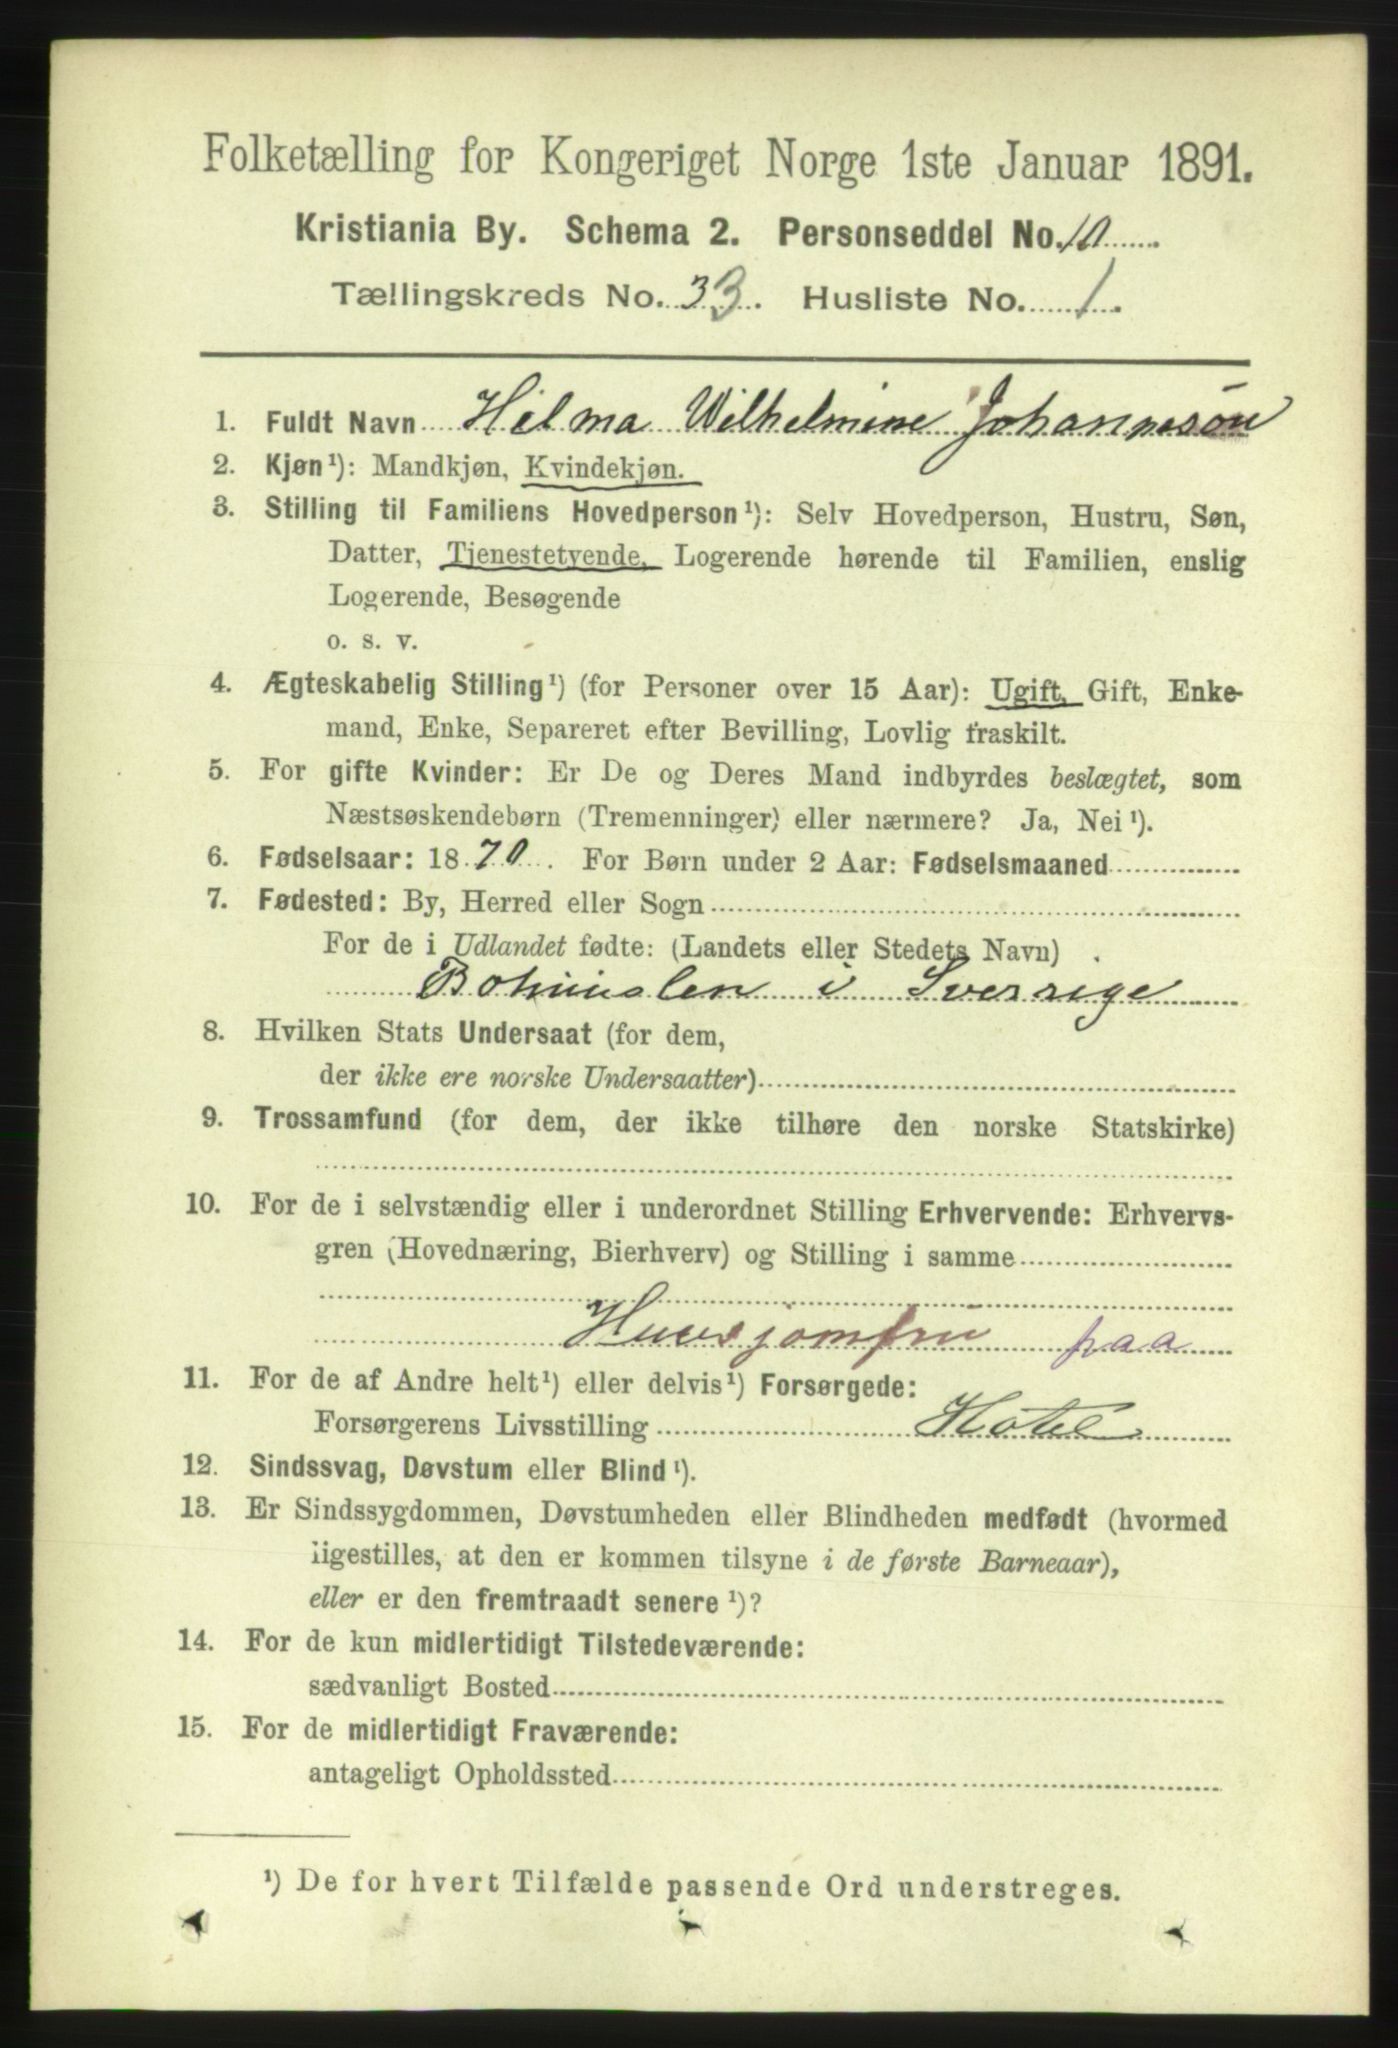 Folketælling for Kongeriget Norge 1ste Januar 1891.
Kristiania By. Schema 2. Personseddel No. 10
Tællingskreds No. 33. Husliste No. 1.
1. Fuldt Navn Hilma Wilhelmine Johannesøn
2. Kjøn¹): Mandkjøn, Kvindekjøn.
3. Stilling til Familiens Hovedperson¹): Selv Hovedperson, Hustru, Søn,
Datter, Tjenestetyende, Logerende hørende til Familien, enslig
Logerende, Besøgende
o. s. v.
4. Ægteskabelig Stilling¹) (for Personer over 15 Aar): Ugift, Gift, Enke-
mand, Enke, Separeret efter Bevilling, Lovlig fraskilt.
5. For gifte Kvinder: Er De og Deres Mand indbyrdes beslægtet, som
Næstsøskendebørn (Tremenninger) eller nærmere? Ja, Nei¹).
6. Fødselsaar: 1870. For Børn under 2 Aar: Fødselsmaaned
7. Fødested: By, Herred eller Sogn
For de i Udlandet fødte: (Landets eller Stedets Navn)
Bohuuslen i Sverrige
8. Hvilken Stats Undersaat (for dem,
der ikke ere norske Undersaatter)
9. Trossamfund (for dem, der ikke tilhøre den norske Statskirke)
10. For de i selvstændig eller i underordnet Stilling Erhvervende: Erhvervs-
gren (Hovednæring, Bierhverv) og Stilling i samme
Huusjomfru paa
11. For de af Andre helt¹) eller delvis¹) Forsørgede:
Forsørgerens Livsstilling Hotel
12. Sindssvag, Døvstum eller Blind¹).
13. Er Sindssygdommen, Døvstumheden eller Blindheden medfødt (hvormed
ligestilles, at den er kommen tilsyne i de første Barneaar),
eller er den fremtraadt senere¹)?
14. For de kun midlertidigt Tilstedeværende:
sædvanligt Bosted
15. For de midlertidigt Fraværende:
antageligt Opholdssted
¹) De for hvert Tilfælde passende Ord understreges.